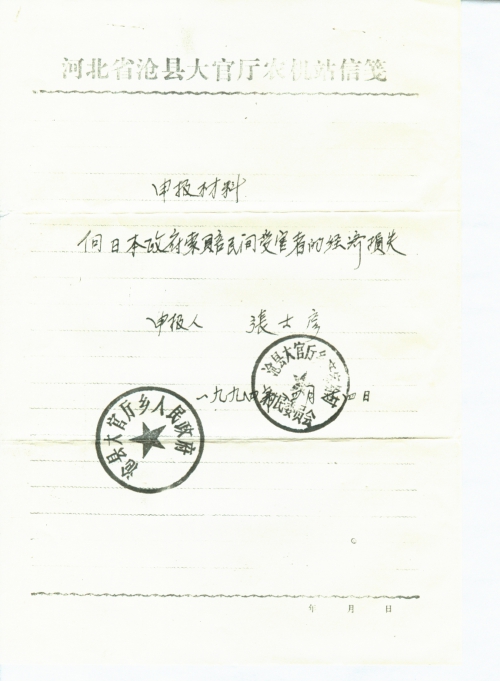 河北省沧县大官厅农机站信笺
申报材料
向日本政府索赔民间受害者的经济损失
申报人 張士彦
一九九四年 月 四日
沧县大官厅
村民委员会
沧县大官厅乡人民政府
年 月 日